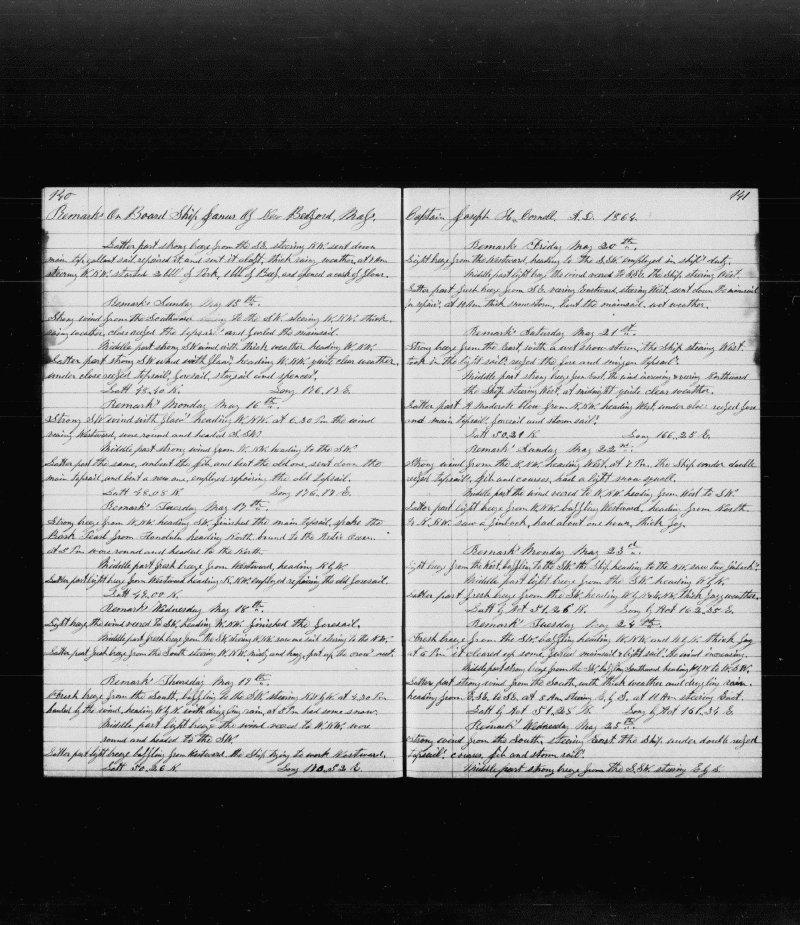 140
Remarks On Board Ship Janus Of New Bedford, Mass,
Latter part strong breeze from the S.E. steering N.W. sent down
main top gallant sail, repaired it, and sent it aloft, thick rainy weather, at
steering W.N.W. started 2 bbl of Pork, 1 bbl of Beef, and opened a cask of flour.
Remarks Sunday May 15th.
Strong wind from the Southward to the S.W. steering W.N.W. thick
rainy weather, close reefed the topsails and furled the mainsail.
Middle part strong S.W. wind with thick weather heading W.N.W.
Latter part strong SW wind with heading W.N.W. quite clear weather.
under close reefed topsails, foresail, staysail and spencer.
Latt 48.40 N. Long
Remarks Monday May 16th.
Strong S.W. wind with heading W.N.W. at 6.30 Pm the wind
Westward, wore round and headed S.SW.
Middle part strong wind from W.NW. heading to the SW.
Latter part the same, unbent the jib, and bent the old one, sent down the
main topsail, and bent a new one, employed repairing the old topsail.
Latt 48.08 N. Long 176.17 E.
Remarks Tuesday May 17th.
Strong breeze from W.NW. heading SW. finished the main topsail, spoke the
Bark from Honolulu heading North, bound to the Artic Ocean.
at 5 Pm wore round and headed to the North.
Middle part fresh breeze from Westward, heading N by W.
Latter part light breeze from Westward heading N.NW. employed repairing the old foresail.
Latt 49.00 N.
Remarks Wednesday May 18th.
Light breeze the wind veered to S.W. heading W.NW. finished the foresail.
Middle part fresh breeze from the SW. steering W.NW. saw one sail steering to the N.W.
Latter part fresh breeze from the South steering W.N.W. misty and foggy, put up the crows nest.
Remarks Thursday May 19th.
Fresh breeze from the South, baffling to the SW. steering NW by W. at 3.30 Pm
hauled by the wind, heading W by N. with drizzling rain, at 5 Pm had some snow.
Middle part light breeze the wind veered to W.NW. wore
round and headed to the SW.
Latter part light breeze baffling from Westward, the Ship trying to work Westward.
Latt 50.26 N. Long
141
Captain Joseph H. Cornell A.D. 1864.
Remarks Friday May 20th.
Light breeze from the Westward, heading to the S.SW. employed in ship's duty.
Middle part light breeze the wind veered to the Ship steering West.
Latter part fresh breeze from S.E. veering Eastward, steering West. sent down the mainsail
to repair, at 10 Am thick snowstorm, bent the mainsail, wet weather.
Remarks Saturday May 21st.
Strong breeze from the East with a wet snow storm, the Ship steering West
took in the light sails, reefed the fore and mizzen topsails.
Middle part strong breeze from East, the wind increasing & veering Northward
the Ship steering West, at midnight quite clear weather.
Latter part A moderate blow from N.NW. heading West, under close reefed fore
and main topsails, foresail and storm sails.
Latt 50.21 N. Long 166.25 E.
Remarks Sunday May 22nd.
Strong wind from the N.NW. heading West, at 7 Pm. the Ship under double
reefed topsails, jib and courses, had a light snow squall.
Middle part the wind veered to W.NW. heading from West to S.W.
Latter part light breeze from W.NW. baffling Westward, heading from North
to N.NW. saw a finback, had about one hour thick fog.
Remarks Monday May 23d.
Light breeze from the West, baffling to the S.W. the Ship heading to the NW. saw two finbacks.
Middle part light breeze from the SW. heading W by N.
Latter part fresh breeze from the SW. heading W by N & W.NW. thick foggy weather.
Latt by Act 51.26 N. Long by Act 162.35 E.
Remarks Tuesday May 24th.
Fresh breeze from the SW. baffling, heading W.NW. and W by N. thick fog
at 6 Pm it cleared up some, furled mainsail & light sails, the wind increasing.
Middle part strong breeze from the SW. baffling Southward heading W by N to W.SW.
Latter part strong wind from the South, with thick weather and drizzling rain.
heading from E.SE. to SE. at 8 Am steering E by S. at 11 Am steering East.
Latt by Act 51.28 N. Long by Act 161.34 E.
Remarks Wednesday May 25th.
Strong wind from the South, steering East, the Ship under double reefed
topsails, courses, jib and storm sails.
Middle part strong breeze from the S.SW. steering E by S.